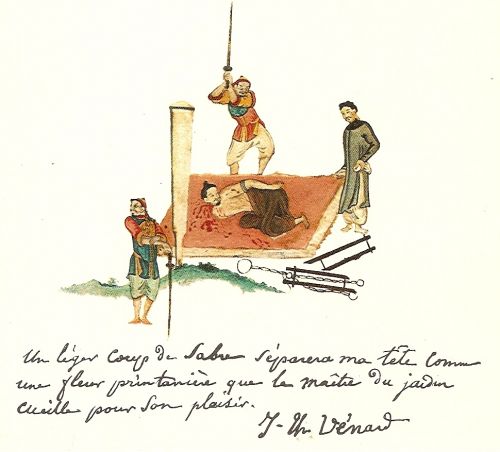 Un léger coup de sabre séparera ma tête comme
une fleur printanière que le maître du jardin
cueille pour son plaisir.
J-Th Vénard